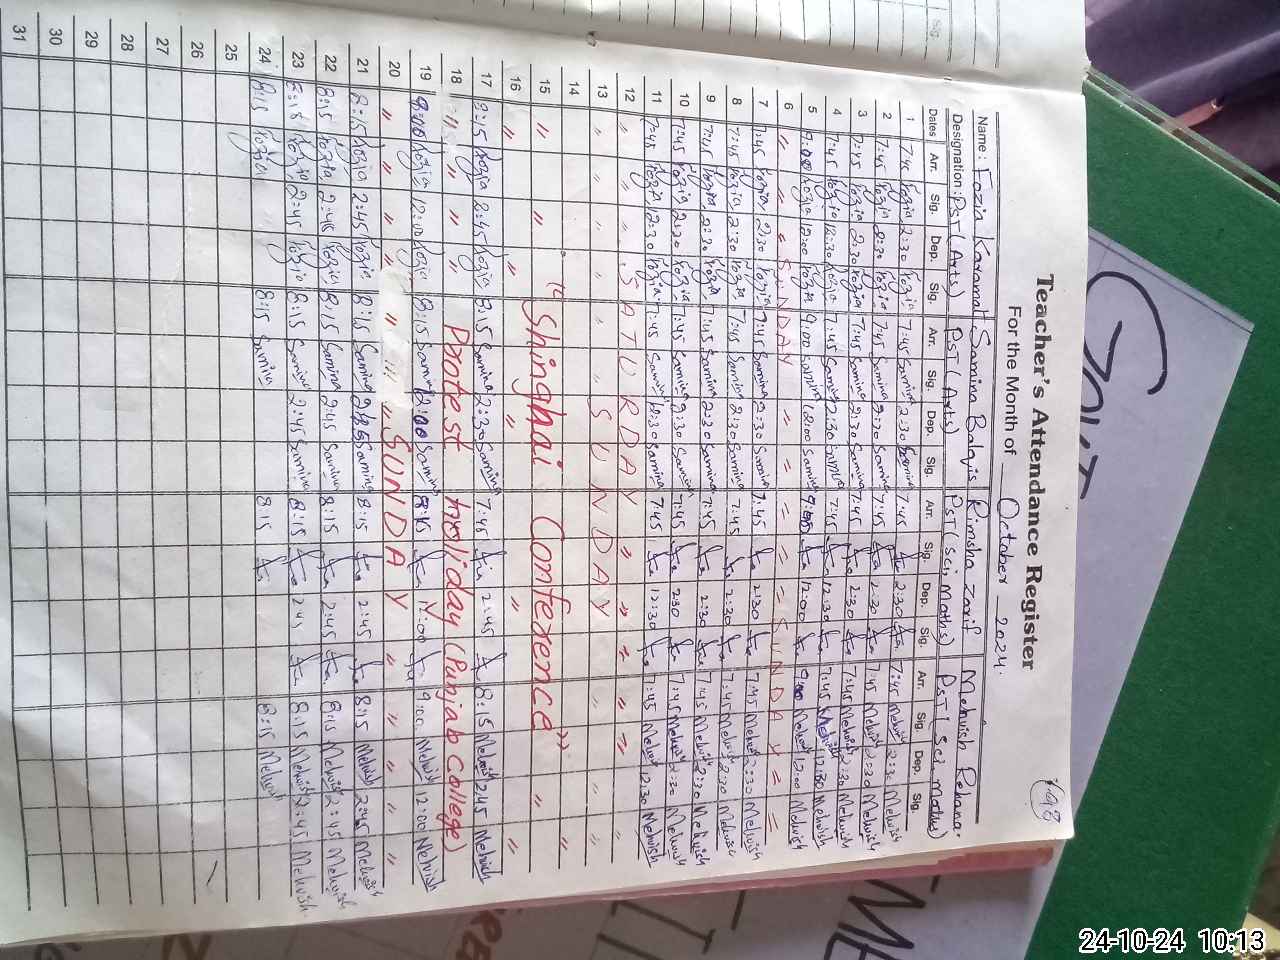 198
Teacher's Attendance Register
For the Month of October 2024.
Name: Fozia Karamat Samina Balqis Rimsha Zarif Mehvish Rehana.
Designation: PST (Arts) PST (Arts) PST (Sci, Maths) PST (Sci, maths)
Dates Arr. Sig. Dep. Sig. Arr. Sig. Dep. Sig. Arr. Sig. Dep. Sig. Arr. Sig. Dep. Sig.
1 7:45 Fozia 2:30 Fozia 7:45 Samina 2:30 Samina 7:45 2:30 7:45 Mehvish 2:30 Mehvish
2 7:45 Fozia 2:30 Fozia 7:45 Samina 2:30 Samina 7:45 2:30 7:45 Mehvish 2:30 Mehvish
3 7:45 Fozia 2:30 Fozia 7:45 Samina 2:30 Samina 7:45 2:30 7:45 Mehvish 2:30 Mehvish
4 7:45 Fozia 12:30 Fozia 7:45 Samina 12:30 Samina 7:45 12:30 7:45 Mehvish 12:30 Mehvish
5 9:00 Fozia 12:00 Fozia 9:00 Samina 12:00 Samina 9:00 12:00 9:00 Mehvish 12:00 Mehvish
6 " " " SUNDAY " = = SUNDAY = =
7 7:45 Fozia 2:30 Fozia 7:45 Samina 2:30 Samina 7:45 2:30 7:45 Mehvish 2:30 Mehvish
8 7:45 Fozia 2:30 Fozia 7:45 Samina 2:30 Samina 7:45 2:30 7:45 Mehvish 2:30 Mehvish
9 7:45 Fozia 2:30 Fozia 7:45 Samina 2:30 Samina 7:45 2:30 7:45 Mehvish 2:30 Mehvish
10 7:45 Fozia 2:30 Fozia 7:45 Samina 2:30 Samina 7:45 2:30 7:45 Mehvish 2:30 Mehvish
11 7:45 Fozia 12:30 Fozia 7:45 Samina 12:30 Samina 7:45 12:30 7:45 Mehvish 12:30 Mehvish
12 " " " SATURDAY " " " " "
13 " " " " " " SUNDAY " " "
14
15 " " " "Shinghai Conference" " "
16 " " " " "
17 8:15 Fozia 2:45 Fozia 8:15 Samina 2:30 Samina 7:45 2:45 8:15 Mehvish 2:45 Mehvish
18 " " " " Protest holiday (Punjab College)
19 9:00 Fozia 12:00 Fozia 8:15 Samina 12:00 Samina 8:15 12:00 9:00 Mehvish 12:00 Mehvish
20 " " " " " SUNDAY " " " "
21 8:15 Fozia 2:45 Fozia 8:15 Samina 2:45 Samina 8:15 2:45 8:15 Mehvish 2:45 Mehvish
22 8:15 Fozia 2:45 Fozia 8:15 Samina 2:45 Samina 8:15 2:45 8:15 Mehvish 2:45 Mehvish
23 8:15 Fozia 2:45 Fozia 8:15 Samina 2:45 Samina 8:15 2:45 8:15 Mehvish 2:45 Mehvish.
24 8:15 Fozia 8:15 Samina 8:15 8:15 Mehvish
25
26
27
28
29
30
31
Sig.
24-10-24 10:13